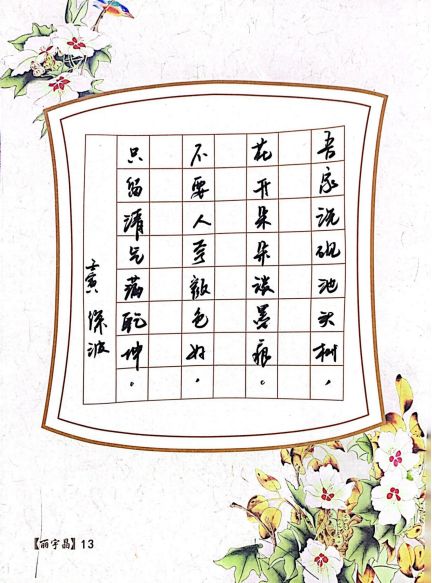 吾家洗砚池头树，
花开朵朵淡墨痕。
不要人夸颜色好，
只留清气满乾坤。
壬寅 波
【丽字晶】13